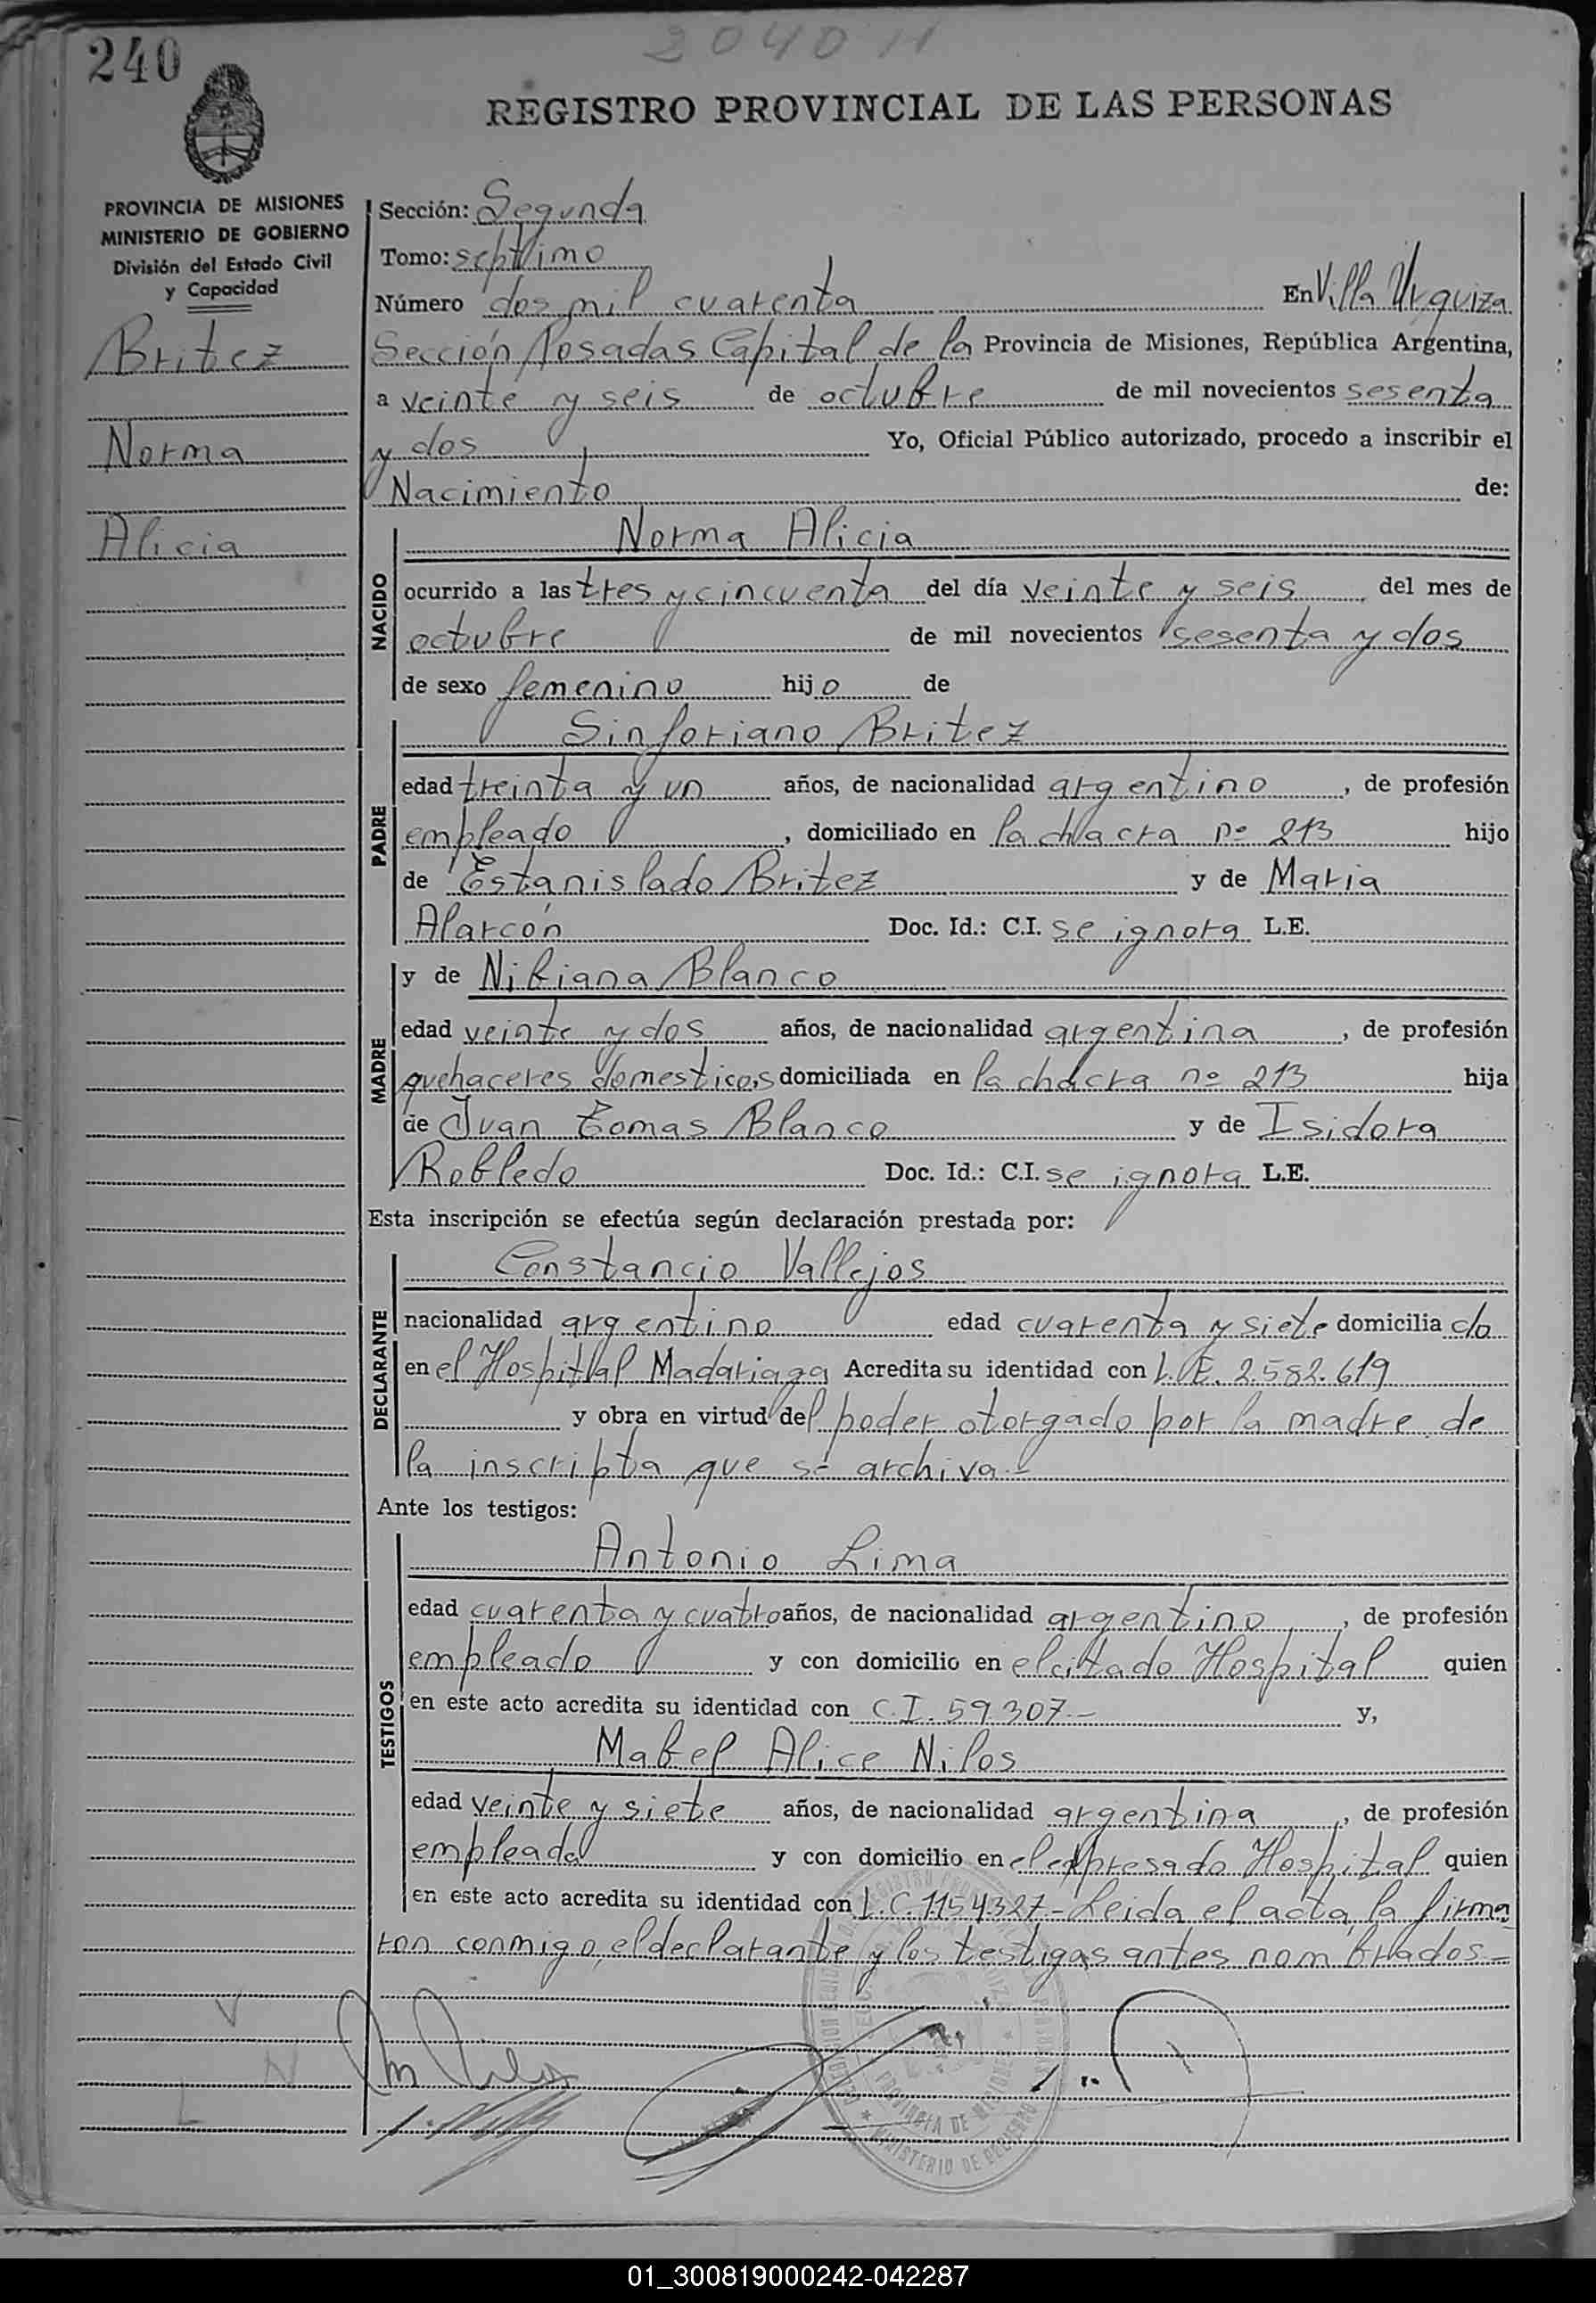 240
2040 11
REGISTRO PROVINCIAL DE LAS PERSONAS
PROVINCIA DE MISIONES
MINISTERIO DE GOBIERNO
División del Estado Civil
y Capacidad
Britez
Norma
Alicia
Sección: Segunda
Tomo: septimo
Número dos mil cuarenta En Villa Urquiza
Sección Posadas Capital de la Provincia de Misiones, República Argentina,
a veinte y seis de octubre de mil novecientos sesenta
y dos Yo, Oficial Público autorizado, procedo a inscribir el
Nacimiento de:
NACIDO
Norma Alicia
ocurrido a las tres y cincuenta del día veinte y seis del mes de
octubre de mil novecientos sesenta y dos
de sexo femenino hijo de
PADRE
Sinforiano Britez
edad treinta y un años, de nacionalidad argentino, de profesión
empleado, domiciliado en la chacra nº 213 hijo
de Estanislado Britez y de Maria
Alarcón Doc. Id.: C.I. se ignora L.E.
MADRE
y de Nibiana Blanco
edad veinte y dos años, de nacionalidad argentina, de profesión
quehaceres domesticos, domiciliada en la chacra nº 213 hija
de Juan Tomas Blanco y de Isidora
Robledo Doc. Id.: C.I. se ignora L.E.
Esta inscripción se efectúa según declaración prestada por:
DECLARANTE
Constancio Vallejos
nacionalidad argentino edad cuarenta y siete domiciliado
en el Hospital Madariaga Acredita su identidad con L.E. 2.582.619
y obra en virtud del poder otorgado por la madre de
la inscripta que se archiva.-
Ante los testigos:
TESTIGOS
Antonio Lima
edad cuarenta y cuatro años, de nacionalidad argentino, de profesión
empleado y con domicilio en el citado Hospital quien
en este acto acredita su identidad con C.I. 59.307.- y,
Mabel Alice Nilos
edad veinte y siete años, de nacionalidad argentina, de profesión
empleada y con domicilio en el expresado Hospital quien
en este acto acredita su identidad con L.C. 1154327.- Leida el acta, la firma
ron conmigo, el declarante y los testigas antes nombrados.-
PROVINCIA DE MISIONES
MINISTERIO DE GOBIERNO
01_300819000242-042287